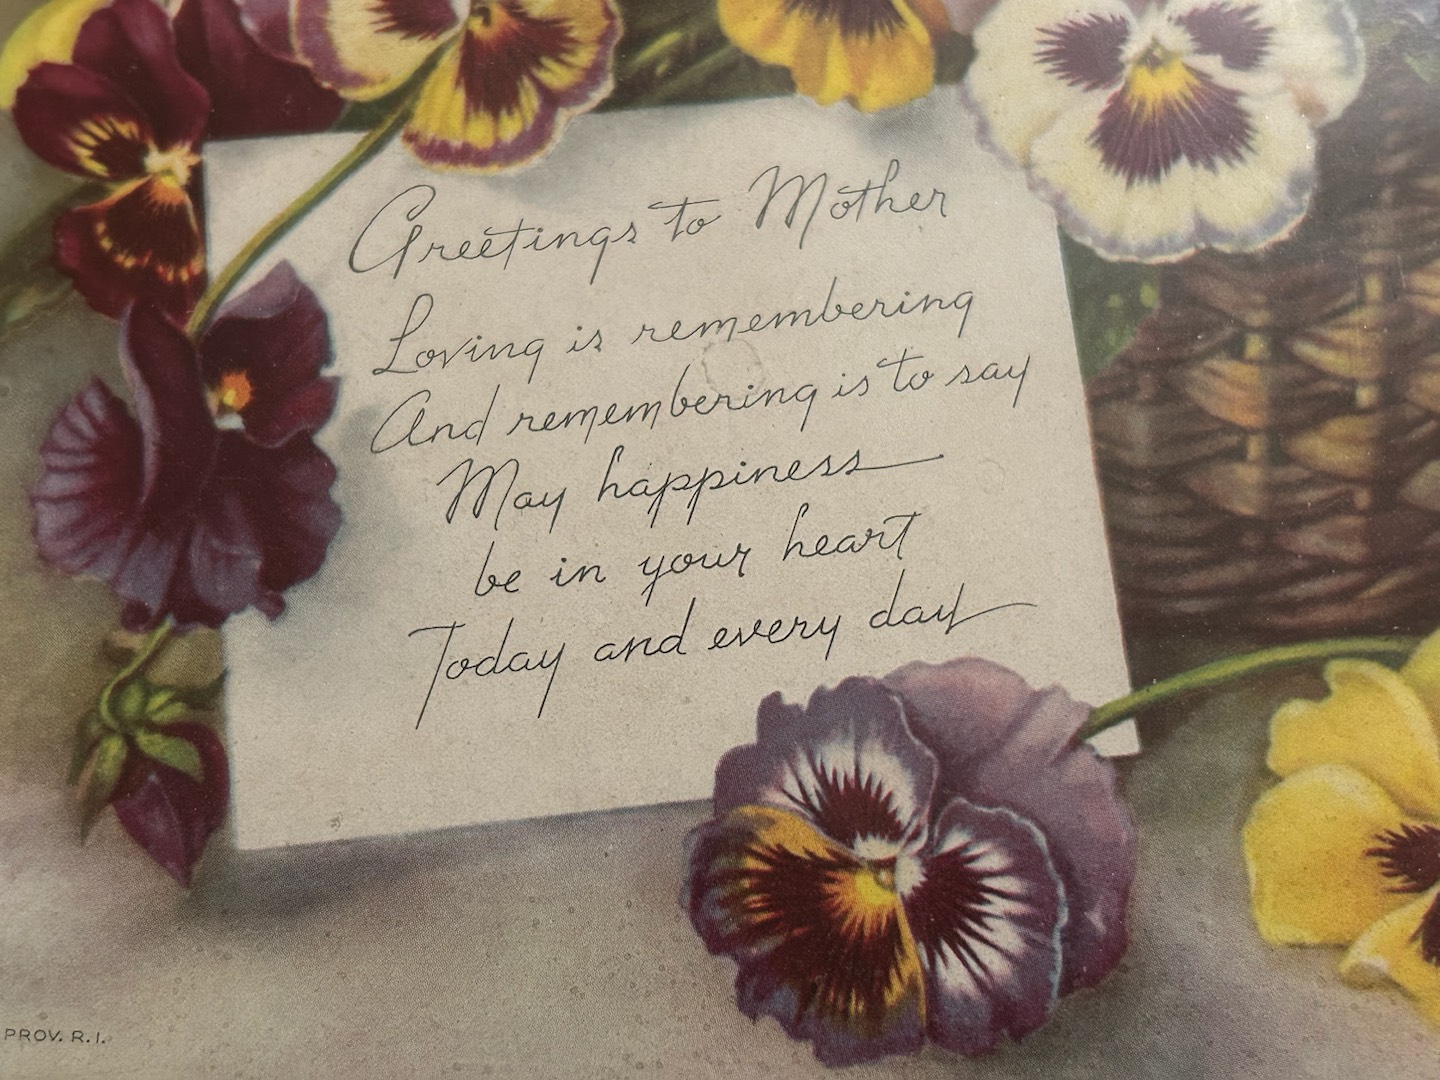 Greetings to Mother
Loving is remembering
And remembering is to say
May happiness
be in your heart
Today and every day
PROV. R.I.